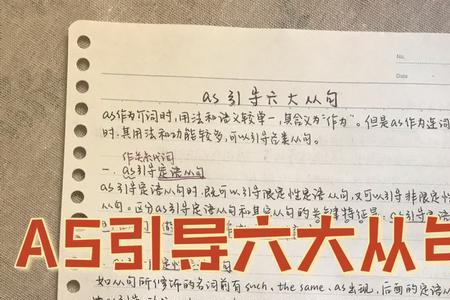 No.
Date
as引导六大从句
as作为介词时,用法和语义较单一,其含义为"作为"。但是as作为连词
时,其用法和功能较多,可以引导各类从句。
作关系代词
一、as引导定语从句
as引导定语从句时,既可以引导限定性定语从句,又可以引导非限定性
从句。区分as引导定语从句和其它从句的关键特征是:as引导定语
AS引导六大从句
如从句所修饰的名词前有such、the same、as出现,后面的定语从